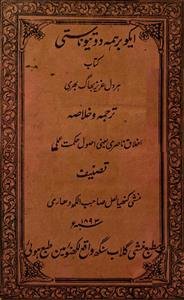 ایکو برہمہ دوتیو ناستی
کتاب
ہر دل عزیز بھاگ بھری
ترجمہ و خلاصہ
اخلاق ناصری یعنی اصول حکمت عملی
تصنیف
منشی کنھیا لعل صاحب الکھدھاری
۱۸۹۳ء
مطبع منشی گلاب سنگھ واقع لکھنؤ میں طبع ہوئی